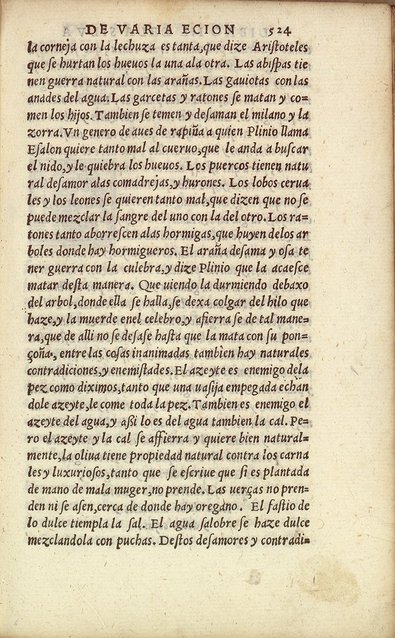 DE VARIA ECION 524
la corneja con la lechuza es tanta, que dize Aristoteles
que se hurtan los hueuos la una ala otra. Las abispas tie
nen guerra natural con las arañas. Las gauiotas con las
anades del agua. Las garcetas y ratones se matan y co-
men los hijos. Tambien se temen y desaman el milano y la
zorra. Vn genero de aues de rapiña a quien Plinio llama
Esalon quiere tanto mal al cueruo, que le anda a buscar
el nido, y le quiebra los hueuos. Los puercos tienen natu
ral desamor alas comadrejas, y hurones. Los lobos cerua
les y los leones se quieren tanto mal, que dizen que no se
puede mezclar la sangre del uno con la del otro. Los ra-
tones tanto aborrescen alas hormigas, que huyen delos ar
boles donde hay hormigueros. El araña desama y osa te
ner guerra con la culebra, y dize Plinio que la acaesce
matar desta manera. Que uiendo la durmiendo debaxo
del arbol, donde ella se halla, se dexa colgar del hilo que
haze, y la muerde enel celebro, y afierra se de tal mane-
ra, que de alli no se desase hasta que la mata con su pon-
çoña, entre las cosas inanimadas tambien hay naturales
contradiciones, y enemistades. El azeyte es enemigo dela
pez como diximos, tanto que una uasija empegada echan
dole azeyte, le come toda la pez. Tambien es enemigo el
azeyte del agua, y assi lo es del agua tambien la cal. Pe-
ro el azeyte y la cal se affierra y quiere bien natural-
mente, la oliua tiene propiedad natural contra los carna
les y luxuriosos, tanto que se escriue que si es plantada
de mano de mala muger, no prende. Las uerças no pren-
den ni se asen, cerca de donde hay oregano. El fastio de
lo dulce tiempla la sal. El agua salobre se haze dulce
mezclandola con puchas. Destos desamores y contradi-